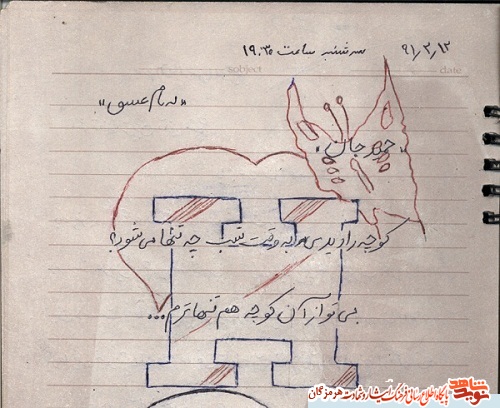 ۹۱/۳/۱۲ سه شنبه ساعت ۱۹:۳۰
subject date
«به نام عشق»
جان
کوچه را دیدی به وقت شب چه تنها می شود؟
بی تو از آن کوچه هم تنها ترم...
نوید شاهد
پایگاه اطلاع رسانی فرهنگ ایثار و شهادت هرمزگان